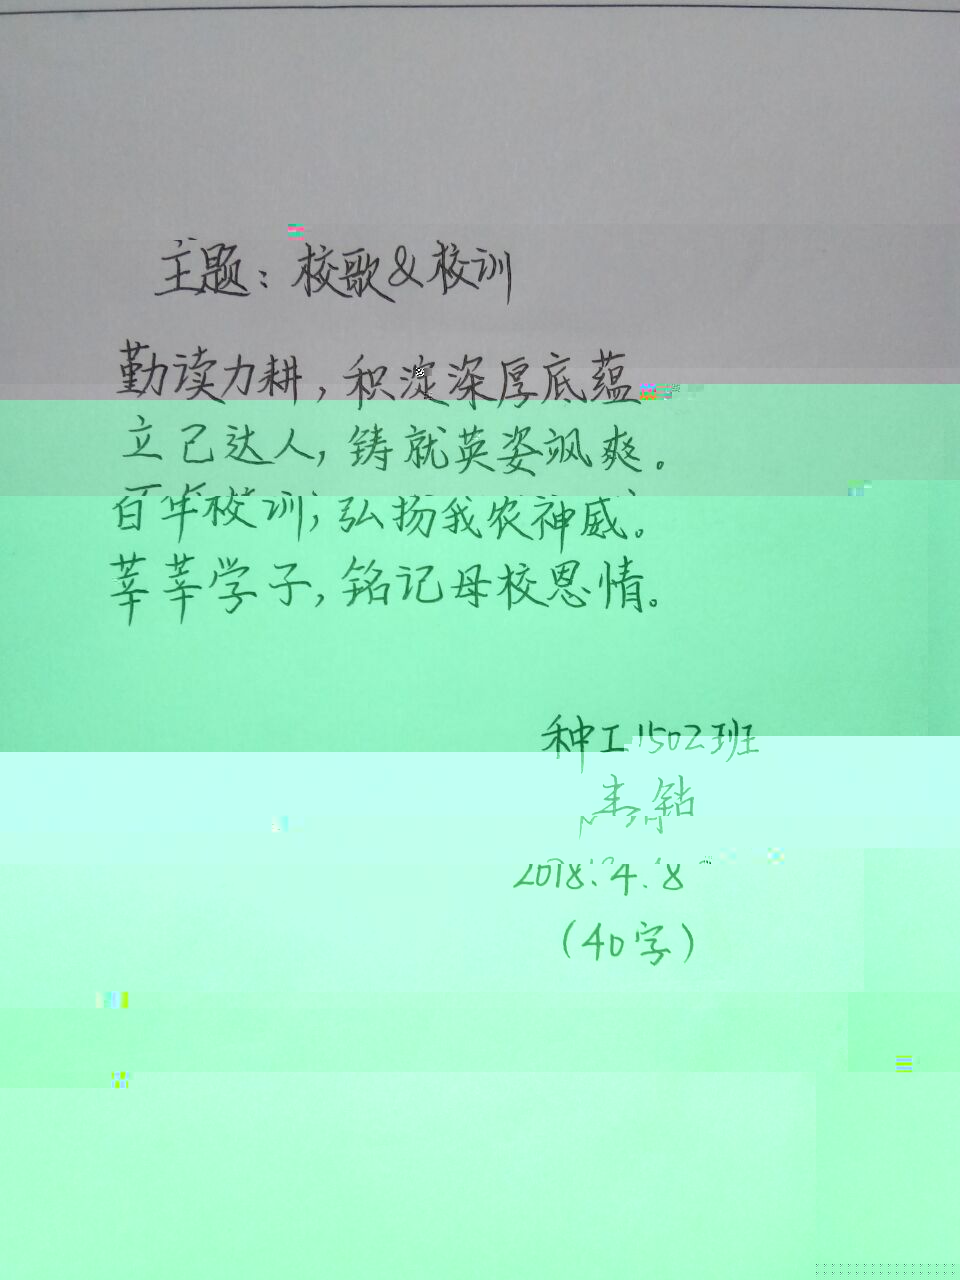 主题：校歌&校训
勤读力耕，积淀深厚底蕴
立己达人，铸就英姿飒爽。
百年校训，弘扬我农神威。
莘莘学子，铭记母校恩情。
种工1502班
2018.4.8
（40字）